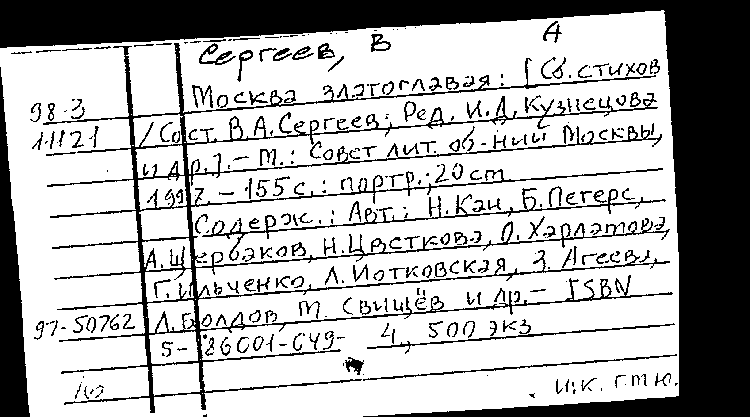 Сергеев, В А
98-3 Москва златоглавая: [Сб. стихов
11121 / Сост. В.А. Сергеев; Ред. И.Д. Кузнецова
и др.]. - М.: Совет лит. об-ний Москвы,
1997. - 155 с.: портр.; 20 cm
Содерж.: Авт.: Н. Кан, Б. Петерс,
А. Щербаков, Н. Цветкова, О. Харламова,
Г. Ильченко, Л. Иотковская, З. Агеева,
97-50762 Л. Болдов, М. Свищёв и др. - ISBN
5-86001-049-4, 500 экз
И.К. ГМЮ.